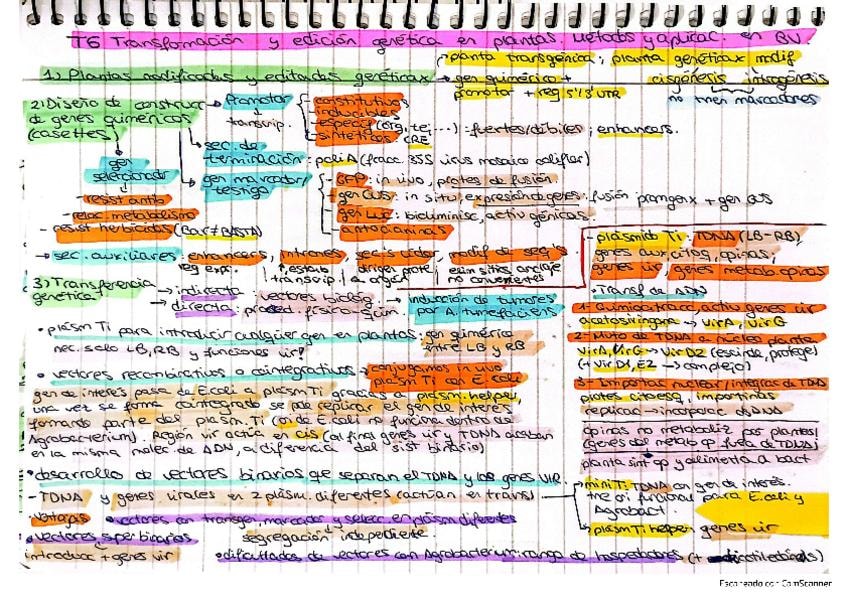 T6 Transformación y edición genética en plantas. Métodos y aplicac. en BV.
1) Plantas modificadas y editadas genéticax
planta transgénica; planta genéticax modif
gen quimérico +
promotor + reg 5'/3' UTR
cisgénesis intragénesis
no tienen marcadores
2) Diseño de construcc
de genes quiméricos
(casettes)
Promotor
transcrip.
constitutivos
inducibles
específ (org, te, ...) - fuertes/débiles; enhancers.
sintéticos CRE
sec. de
terminación: poli A (fracc. 35S virus mosaico coliflor)
gen marcador/
testigo
- GFP: in vivo, protes de fusión.
- gen GUS: in situ, expresión de genes: fusión promgenx + gen GUS
- gen Luc: bioluminisc, activ génicas.
- antocianinas
gen
seleccionador
- resist antib
- relac metabolismo
- resist herbicidas (bar ≠ BASTA)
→ sec. auxiliares: enhancers, intrones, modif de seq's
reg expr.
↑ estab
transcrip
dirigir prote
a organ
elim sitios anclaje
no convenientes
3) Transferencia
genética
→ indirecta: vectores biológ → inducción de tumores
por A. tumefaciens
→ directa: proced. físico-quím.
- plásmido Ti: TDNA (LB-RB),
genes auxcitoq, opinas,
genes vir, genes metab. opinas
• Transf de ADN
1- Quimioatracc, activ genes vir
acetosiringona → virA, virG
2- Movto de TDNA a núcleo planta
virA, virG → Vir D2 (escinde, protege)
(+ vir D1, E2 → complejo)
3- Importac nuclear/integrac de TDNA
protes citoesq, importinas
replicac → incorporac dsDNA
opinas no metaboliz por plantas
(genes del metab op fuera de TDNA)
planta sint op y alimenta a bact
• plásm Ti para introducir cualquier gen en plantas: gen quimérico
nec. solo LB, RB y funciones vir!
entre LB y RB
• vectores recombinativos o cointegrativos → conjugamos in vivo
plásm Ti con E. coli
gen de interés pasa de E. coli a plásm Ti gracias a plásm. helper,
una vez se forma cointegrado se pde replicar el gen de interés
formando parte del plasm. Ti (ori de E. coli no funciona dentro de
Agrobacterium). Región vir actúa en cis (al final genes vir y TDNA acaban
en la misma molec de ADN, a diferencia del sist binario)
• desarrollo de vectores binarios que separan el TDNA y los genes VIR.
- TDNA y genes virales en 2 plásm. diferentes (actúan en trans)
mini Ti: TDNA con gen de interés.
tiene ori funcional para E. coli y
Agrobact.
plásm Ti helper: genes vir
Ventajas • vectores con transgen, marcador y selecc en plásm diferentes
segregación independiente
• vectores superbinarios
introduce + genes vir
• dificultades de vectores con Agrobacterium: rango de hospedadores (+ dicotiledóneas)
Escaneado con CamScanner